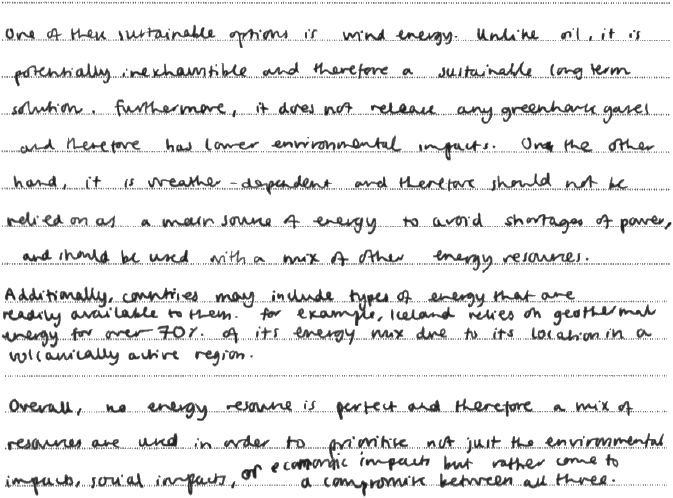 One of these sustainable options is wind energy. Unlike oil, it is
potentially inexhaustible and therefore a sustainable long term
solution. Furthermore, it does not release any greenhouse gases
and therefore has lower environmental impacts. On the other
hand, it is weather-dependent and therefore should not be
relied on as a main source of energy to avoid shortages of power,
and should be used with a mix of other energy resources.
Additionally, countries may include types of energy that are
readily available to them. For example, Iceland relies on geothermal
energy for over 70%. of its energy mix due to its location in a
volcanically active region.
Overall, no energy resource is perfect and therefore a mix of
resources are used in order to prioritise not just the environmental
impacts, social impacts, or economic impacts but rather come to
a compromise between all three.